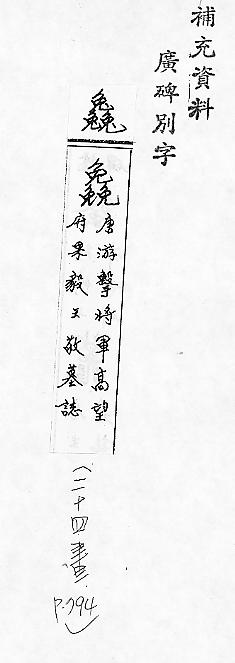 補充資料
廣碑別字
唐游擊將軍高望
府果毅王敬墓誌
(二十四畫. P.794)